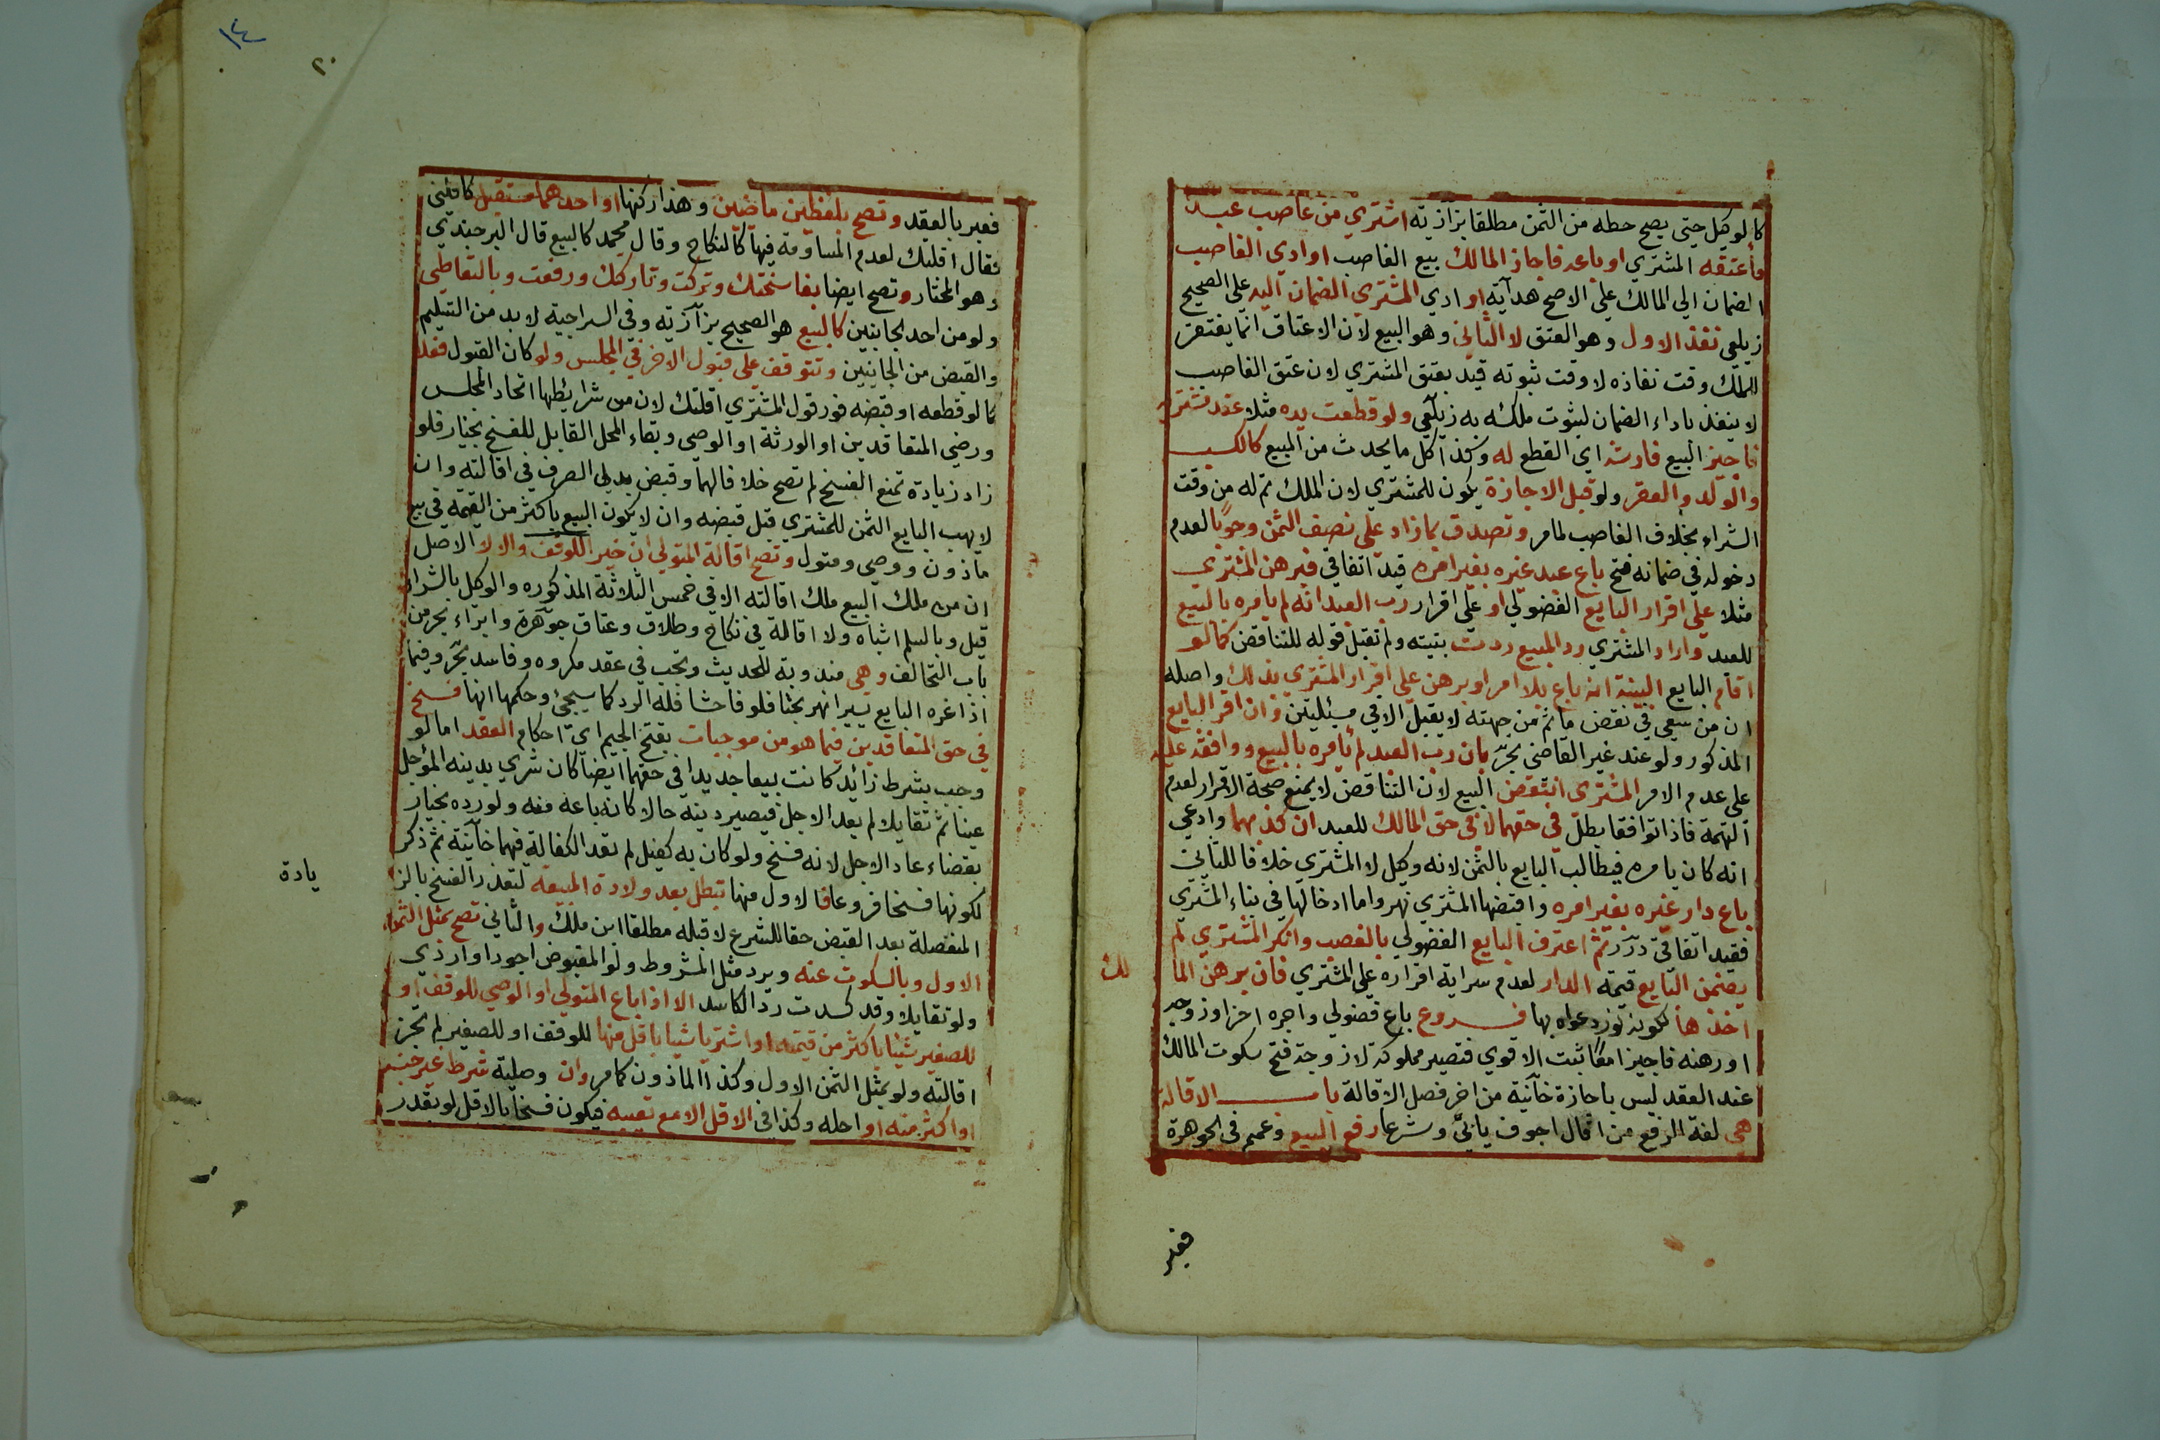 كالوكيل حتى يصح حطه من الثمن مطلقا بزازيه اشتري من غاصب عبدا
فأعتقه المشتري او باعه فاجاز المالك بيع الغاصب او ادى الغاصب
الضمان الي المالك علي الاصح هدآيه او ادي المشتري الضمان اليه علي الصحيح
زيلعي نفذ الاول وهو العتق لا الثاني وهو البيع لان الاعتاق انما يفتقر
للملك وقت نفاذه لا وقت ثبوته قيد بعتق المشتري لان عتق الغاصب
لا ينفذ باداء الضمان لثبوت ملكه به زيلعي ولو قطعت يده مثلا عند مشتريه
فاجيز البيع فارشه اي القطع له وكذا كل ما يحدث من المبيع كالكسب
والولد والعقر ولو قبل الاجازة يكون للمشتري لان الملك تم له من وقت
الشراء بخلاف الغاصب لما مر وتصدق بما زاد علي نصف الثمن وجوبا لعدم
دخوله في ضمانه فتح باع عبد غيره بغير امره قيد اتفاقي فبرهن المشتري
مثلا علي اقرار البايع الفضولي او علي اقرار رب العبد انه لم يامره بالبيع
للعبد واراد المشتري رد المبيع ردت بينته ولم تقبل قوله للتناقض كما لو
اقام البايع البينة انه باع بلا امر او برهن علي اقرار المشتري بذلك واصله
ان من سعي في نقض ما تم من جهته لا يقبل الا في مسئلتين وان اقر البايع
المذكور ولو عند غير القاضي بحر بان رب العبد لم يامره بالبيع ووافقه عليه
علي عدم الامر المشتري انتقض البيع لان التناقض لا يمنع صحة الاقرار لعدم
التهمة فاذا توافقا بطل في حقهما لا في حق المالك للعبد ان كذبهما وادعي
انه كان يامره فيطالب البايع بالثمن لانه وكيل لا المشتري خلافا للثاني
باع دار غيره بغير امره واقبضها المشتري نهر واما ادخالها في بناء المشتري
فقيد اتفاقي درر ثم اعترف البايع الفضولي بالغصب وانكر المشتري لم
يضمن البايع قيمة الدار لعدم سراية اقراره علي المشتري فان برهن الما
لك
اخذها لكونه نور دعواه بها فروع باع فضولي واجره اخر او زوجه
او رهنه فاجيزا معا ثبت الاقوي فتصير مملوكة لا زوجة فتح سكوت المالك
عند العقد ليس باجازة خآنية من اخر فصل الاقالة باب الاقالة
هي لغة الرفع من اقال اجوف يائي وشرعا رفع البيع وعمم في الجوهرة
فعبر
١٤
٢٠
فعبر بالعقد وتصح بلفظين ماضيين وهذا ركنها او احدهما مستقبل كاقلني
فقال اقلتك لعدم المساومة فيها كالنكاح وقال محمد كالبيع قال البرجندي
وهو المختار وتصح ايضا بفاسختك وتركت وتاركتك ورفعت وبالتعاطي
ولو من احد الجانبين كالبيع هو الصحيح بزآزيه وفي السراجية لا بد من التسليم
والقبض من الجانبين وتتوقف علي قبول الاخر في المجلس ولو كان القبول فعلا
كما لو قطعه او قبضه فور قول المشتري اقلتك لان من شرايطها اتحاد المجلس
ورضي المتعاقدين او الورثة او الوصي وبقاء المحل القابل للفسخ بخيار فلو
زاد زيادة تمنع الفسخ لم تصح خلافا لهما وقبض بدلي الصرف في اقالته وان
لا يهب البايع الثمن للمشتري قبل قبضه وان لا يكون البيع باكثر من القيمة في بيع
ماذون ووصي ومتول وتصح اقالة المتولي ان خير اللوقف والا لا الاصل
ان من ملك البيع ملك اقالته الا في خمس الثلاثة المذكوره والوكيل بالشراء
قيل وبالسلم اشباه ولا اقالة في نكاح وطلاق وعتاق جوآهرة وابراء بحر من
باب التحالف وهي مندوبة للحديث وتجب في عقد مكروه وفاسد بحر وفيما
اذا غره البايع يسيرا نهر بحثا فلو فاحشا فله الرد كما سيجئ وحكمها انها فسخ
في حق المتعاقدين فيما هو من موجبات بفتح الجيم اي احكام العقد اما لو
وجب بشرط زايد كانت بيعا جديدا في حقهما ايضا كان شري بدينه المؤجل
عينا ثم تقايلا لم يعد الاجل فيصير دينه حالا كانه باعه منه ولو رده بخيار
بقضاء عاد الاجل لانه فسخ ولو كان به كفيل لم تعد الكفالة فيهما خآنية ثم ذكر
لكونها فسخا فروعا فالاول منها تبطل بعد ولادة المبيعة لتعذر الفسخ بالز
يادة
المنفصلة بعد القبض حقا للشرع لا قبله مطلقا ابن ملك والثاني تصح بمثل الثمن
الاول وبالسكوت عنه ويرد مثل المشروط ولو المقبوض اجود او اردي
ولو تقايلا وقد كسدت رد الكاسد الا اذا باع المتولي او الوصي للوقف او
للصغير شيئا باكثر من قيمته او اشتريا شيا باقل منها للوقف او للصغير لم تجز
اقالته ولو بمثل الثمن الاول وكذا الماذون كما مر وان وصلية شرط غير جنسه
او اكثر منه او احله وكذا في الاقل الا مع تعيبه فيكون فسخا بالاقل لو بقدر